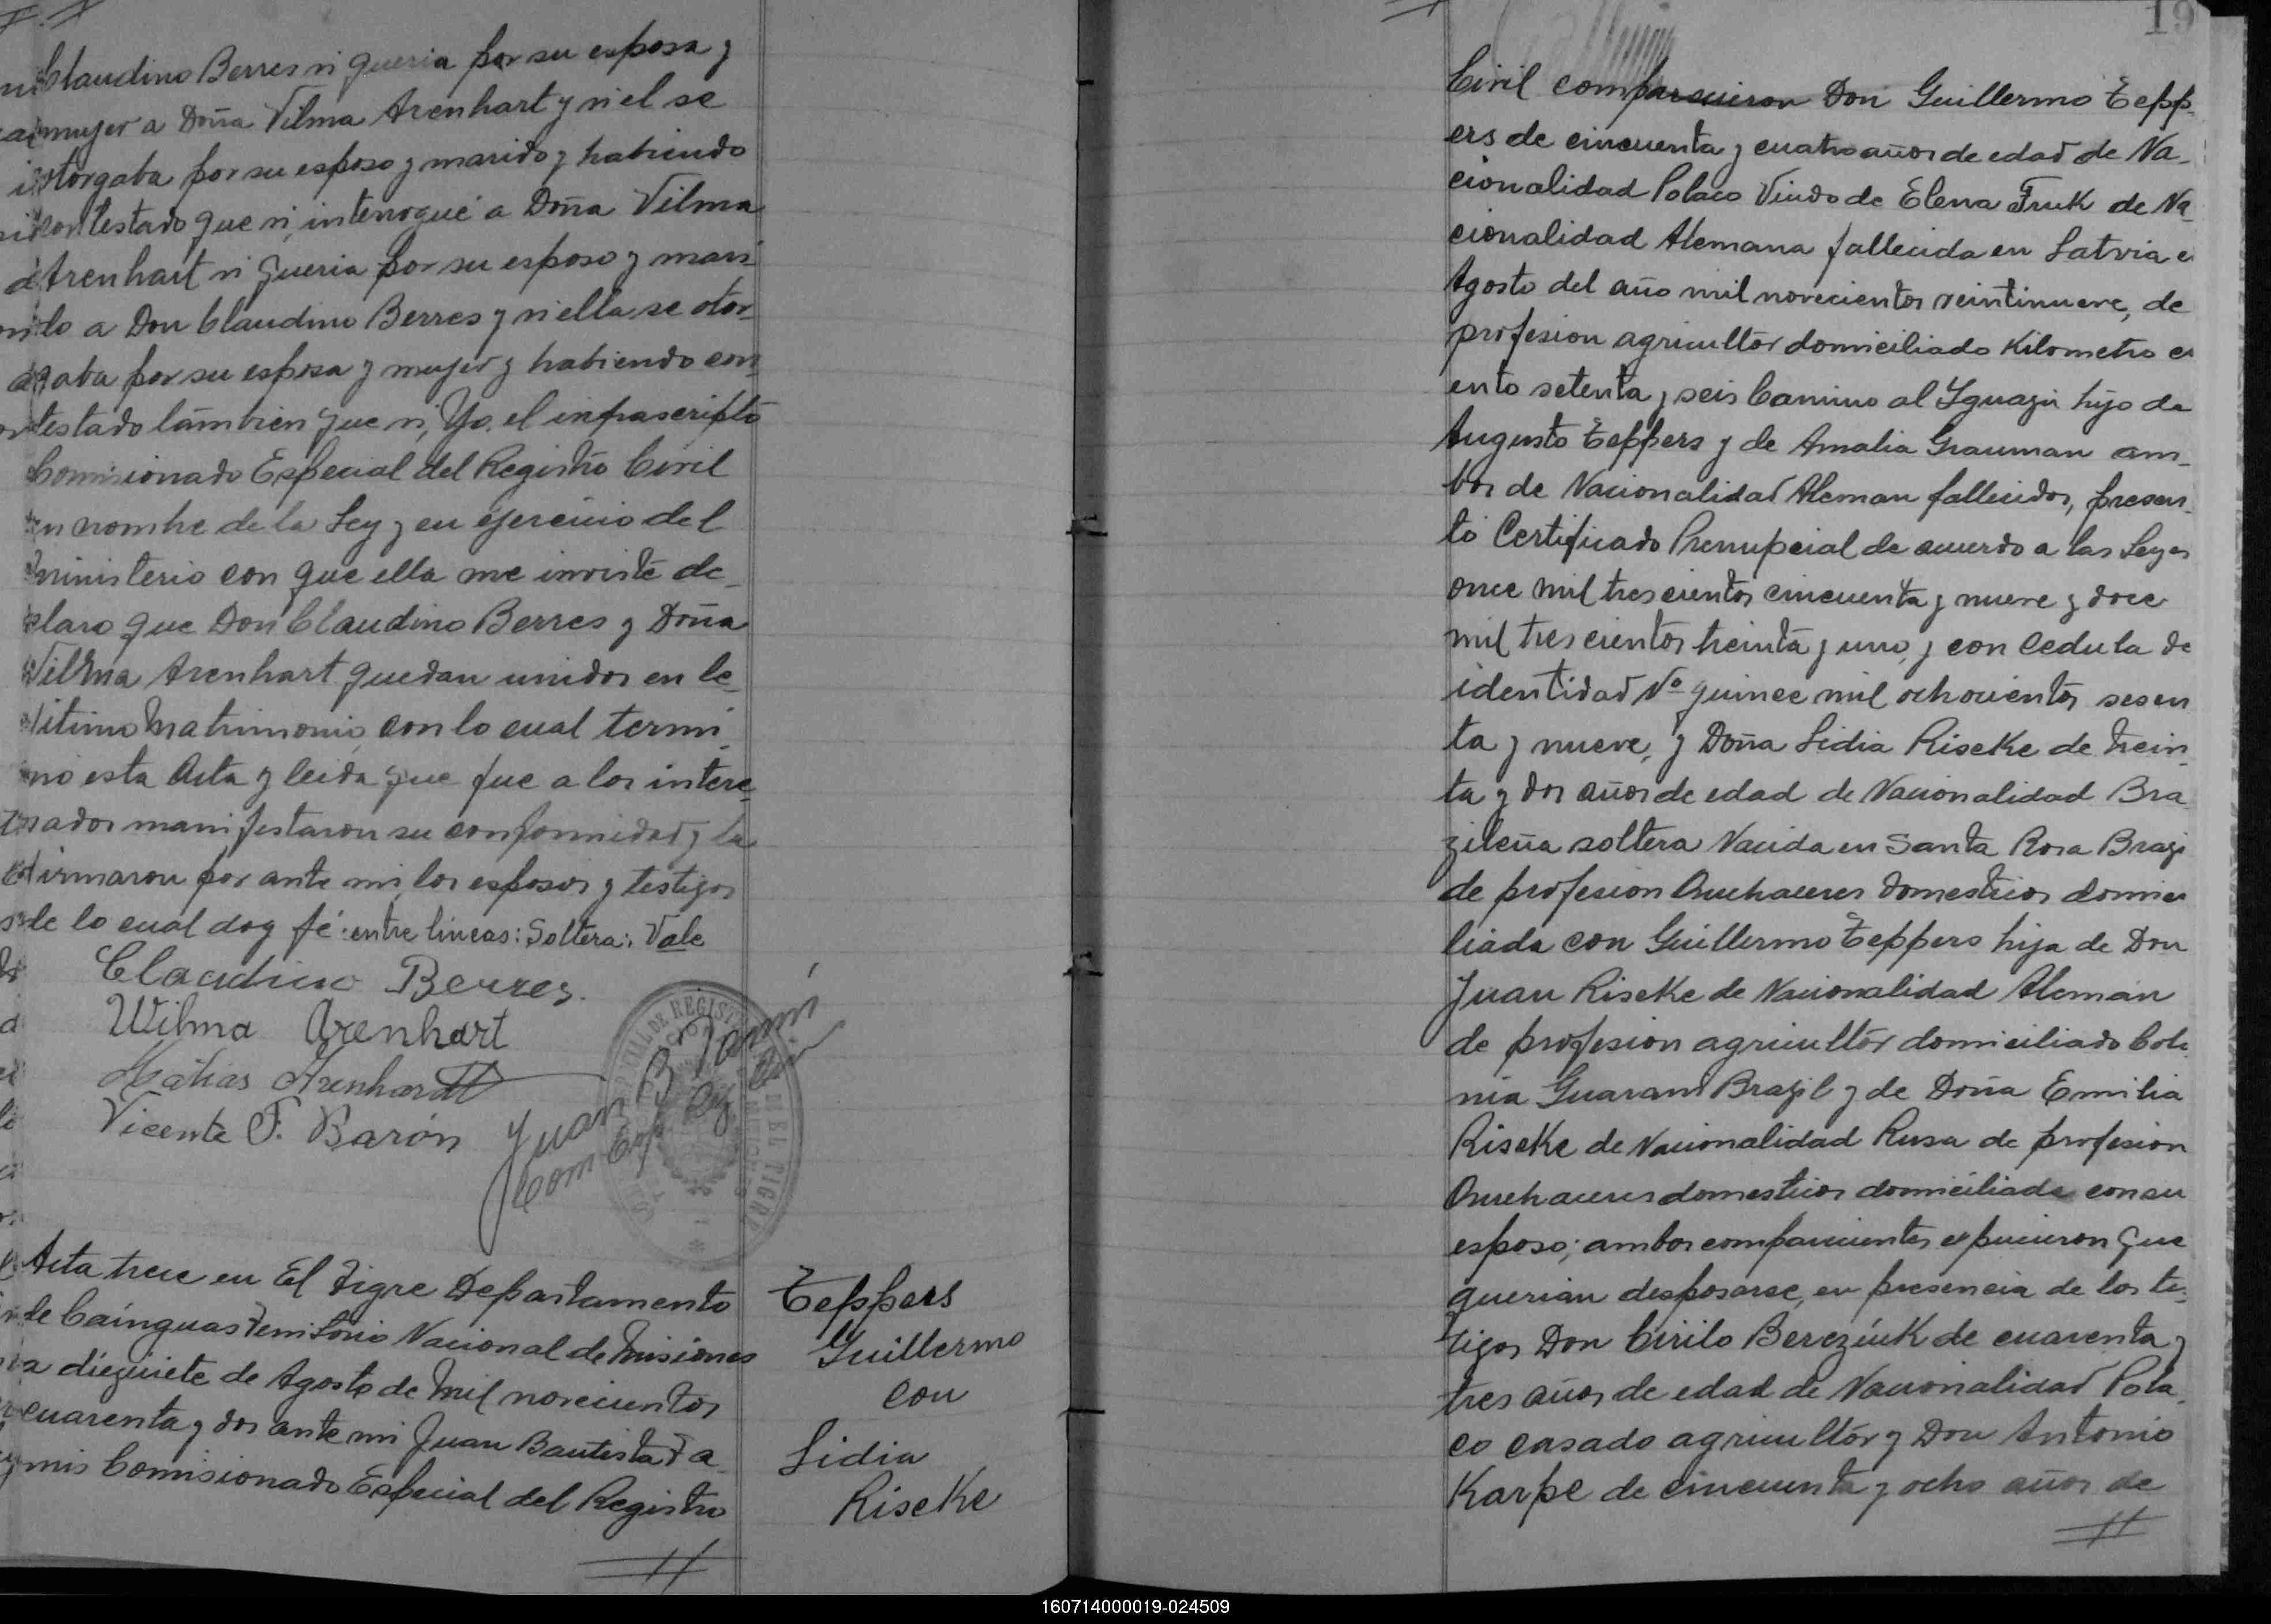 Claudino Berres si queria por su esposa y
mujer a Doña Vilma Arenhart y si el se
otorgaba por su esposo y marido y habiendo
contestado que si, interrogué a Doña Vilma
Arenhart si queria por su esposo y mari
do a Don Claudino Berres y si ella se otor-
gaba por su esposa y mujer y habiendo con
testado también que si, Yo, el infrascripto
Comisionado Especial del Registro Civil
en nombre de la Ley y en ejercicio del
ministerio con que ella me inviste de-
claro que Don Claudino Berres y Doña
Vilma Arenhart quedan unidos en le-
jitimo Matrimonio, con lo cual termi-
no esta Acta y leida que fue a los intere-
sados manifestaron su conformidad y la
firmaron por ante mi, los esposos y testigos
de lo cual doy fé: entre lineas: Soltera: Vale
Claudino Berres.
Wilma Arenhart
Matias Arenhardt
Vicente F. Barón
Juan B
Com Esp
Acta trece en El Tigre Departamento
de Cainguas Territorio Nacional de Misiones
a diezisiete de Agosto de Mil novecientos
cuarenta y dos ante mi Juan Bautista Ta
mis Comisionado Especial del Registro
Teppers
Guillermo
con
Lidia
Riseke
19
Civil comparecieron Don Guillermo Tepp-
ers de cincuenta y cuatro años de edad de Na-
cionalidad Polaco Viudo de Elena Truk de Na-
cionalidad Alemana fallecida en Latvia e
Agosto del año mil novecientos veintinueve, de
profesion agricultor domiciliado Kilometro ci
ento setenta y seis Camino al Yguazú hijo de
Augusto Teppers y de Amalia Grauman am-
bos de Nacionalidad Aleman fallecidos, presen-
tó Certificado Prenupcial de acuerdo a las Leyes
once mil trescientos cincuenta y nueve y doce
mil trescientos treinta y uno, y con Cedula de
identidad Nº quince mil ochocientos sesen
ta y nueve, y Doña Lidia Riseke de trein-
ta y dos años de edad de Nacionalidad Bra
zileña soltera Nacida en Santa Rosa Brazi
de profesion Quehaceres domesticos domici
liada con Guillermo Teppers hija de Don
Juan Riseke de Nacionalidad Aleman
de profesion agricultor domiciliado Colo
nia Guarani Brazil y de Doña Emilia
Riseke de Nacionalidad Rusa de profesion
Quehaceres domesticos domiciliada con su
esposo; ambos comparecientes expucieron que
querian desposarse, en presencia de los te-
tigos Don Cirilo Bereziuk de cuarenta y
tres años de edad de Nacionalidad Pola-
co casado agricultor y Don Antonio
Karpe de cincuenta y ocho años de
160714000019-024509